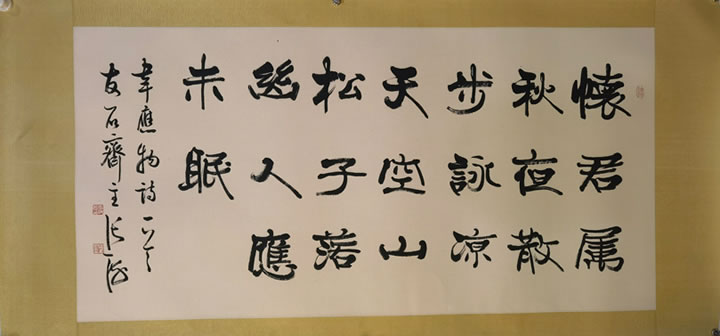 懷君属
秋夜散
步詠凉
天空山
松子落
幽人應
未眠
韋應物詩一首
友石齋主